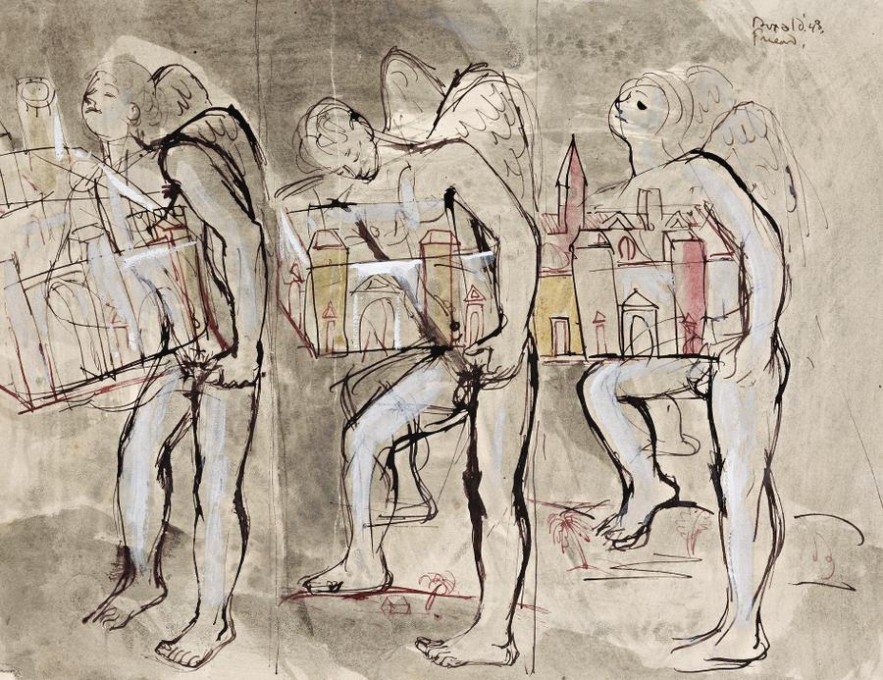 Donald '48.
Friend.